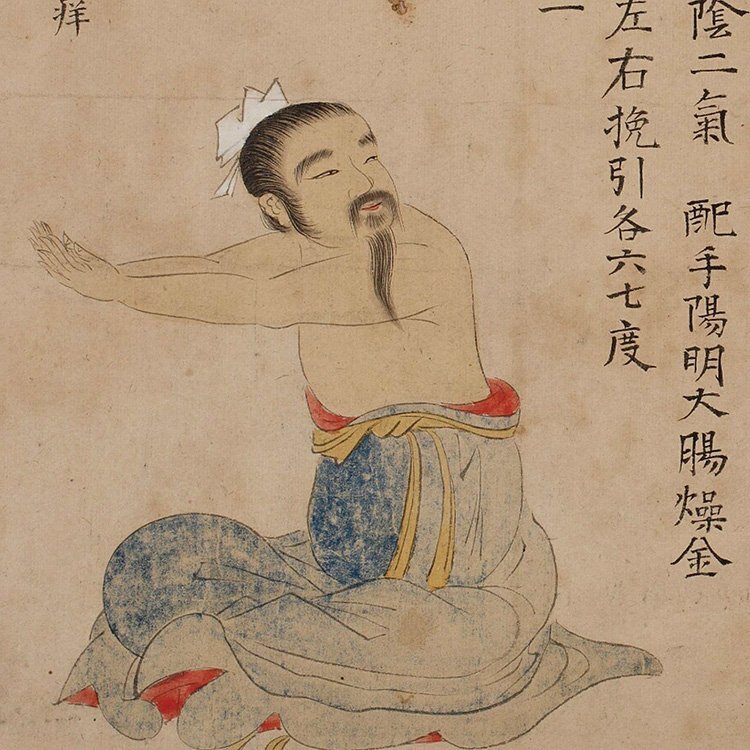 陰二氣　配手陽明大腸燥金
左右挽引各六七度
一
痒